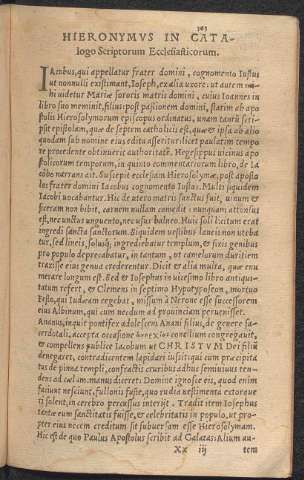 343
HIERONYMVS IN CATA-
logo Scriptorum Ecclesiasticorum.
IAcobus, qui appellatur frater domini, cognomento Iustus
ut nonnulli existimant, Ioseph, ex alia uxore: ut autem mi-
hi uidetur Mariæ sororis matris domini, cuius Ioannes in
libro suo meminit, filius: post passionem domini, statim ab apo
stolis Hierosolymorum episcopus ordinatus, unam tantũ scri-
psit epistolam, quæ de septem catholicis est, quæ & ipsa ab alio
quodam sub nomine eius edita asseritur: licet paulatim tempo
re procedente obtinuerit authoritatẽ. Hegesippus uicinus apo
stolicorum temporum, in quinto commentariorum libro, de Ia
cobo narrans ait. Suscepit ecclesiam Hierosolymæ, post aposto
los frater domini Iacobus cognomento Iustus. Multi siquidem
Iacobi uocabantur. Hic de utero matris sanctus fuit, uinum &
siceram non bibit, carnem nullam comedit: nunquam attonsus
est, nec unctus unguento, nec usus balneo. Huic soli licitum erat
ingredi sancta sanctorum. Siquidem uestibus laneis non uteba
tur, sed lineis, solusq; ingrediebatur templum, & fixis genibus
pro populo deprecabatur, in tantum, ut camelorum duritiem
traxisse eius genua crederentur. Dicit & alia multa, quæ enu
merare longum est. Sed & Iosephus in uicesimo libro antiqui-
tatum refert, & Clemens in septimo Hypotyposeon, mortuo
Festo, qui Iudæam regebat, missum à Nerone esse successorem
eius Albinum, qui cum necdum ad prouinciam peruenisset.
Ananus, inquit pontifex adolescens Anani filius, de genere sa-
cerdotali, accepta occasione concilium congregauit,
& compellens publicè Iacobum ut CHRISTVM Dei filiũ
denegaret, contradicentem lapidari iussit: qui cum præcipita
tus de pinna templi, confractis cruribus adhuc semiuiuus ten-
dens ad cælum manus diceret: Domine ignosce eis, quod enim
faciunt nesciunt, fullonis fuste, quo uuida uestimenta extorque
ri solent, in cerebro percussus interijt. Tradit item Iosephus
tantæ eum sanctitatis fuisse, & celebritatis in populo, ut pro-
pter eius necem creditum sit subuersam esse Hierosolymam.
Hic est de quo Paulus Apostolus scribit ad Galatas: Alium au-
Xx iij tem